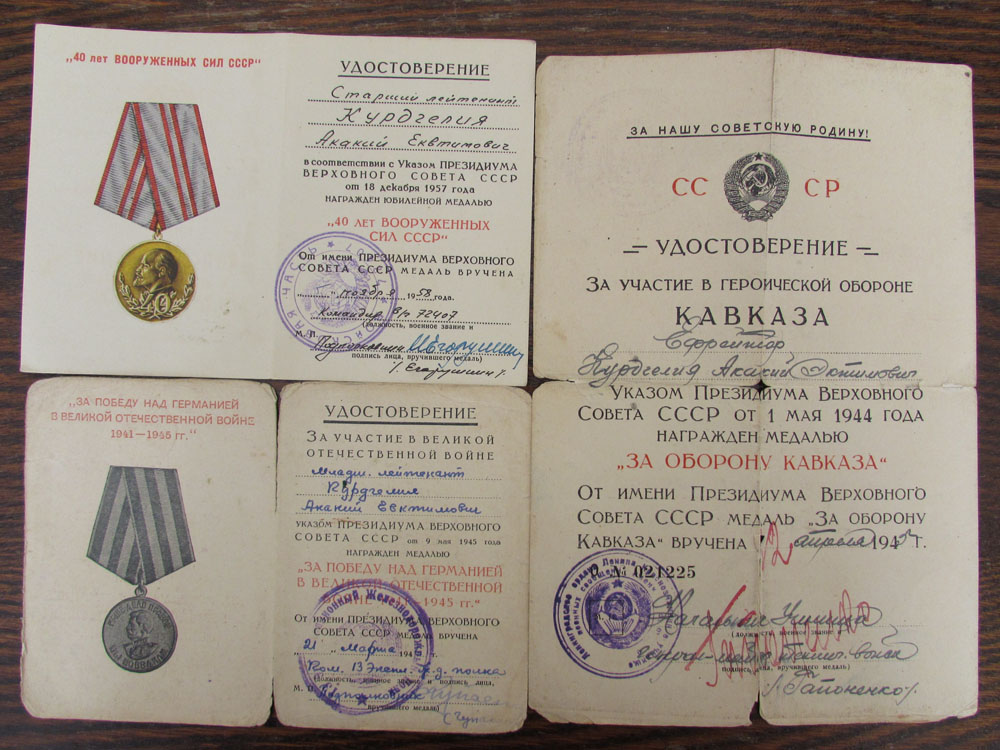 „40 лет ВООРУЖЕННЫХ СИЛ СССР"
УДОСТОВЕРЕНИЕ
Старший лейтенант
Курдгелия
Акакий Евктимович
в соответствии с Указом ПРЕЗИДИУМА
ВЕРХОВНОГО СОВЕТА СССР
от 18 декабря 1957 года
НАГРАЖДЕН ЮБИЛЕЙНОЙ МЕДАЛЬЮ
„40 лет ВООРУЖЕННЫХ
СИЛ СССР"
От имени ПРЕЗИДИУМА ВЕРХОВНОГО
СОВЕТА СССР МЕДАЛЬ ВРУЧЕНА
ноября 1958 года.
Командир в/ч 72407
(должность, военное звание и
М. П. Подполковник
подпись лица, вручившего медаль)
/Егорушкин/
40
„ЗА ПОБЕДУ НАД ГЕРМАНИЕЙ
В ВЕЛИКОЙ ОТЕЧЕСТВЕННОЙ ВОЙНЕ
1941—1945 гг."
УДОСТОВЕРЕНИЕ
ЗА УЧАСТИЕ В ВЕЛИКОЙ
ОТЕЧЕСТВЕННОЙ ВОЙНЕ
Младш. лейтенант
Курдгелия
Акакий Евктимович
УКАЗОМ ПРЕЗИДИУМА ВЕРХОВНОГО
СОВЕТА СССР от 9 мая 1945 года
НАГРАЖДЕН МЕДАЛЬЮ
„ЗА ПОБЕДУ НАД ГЕРМАНИЕЙ
В ВЕЛИКОЙ ОТЕЧЕСТВЕННОЙ
ВОЙНЕ 1941—1945 гг."
От имени ПРЕЗИДИУМА ВЕРХОВНОГО
СОВЕТА СССР МЕДАЛЬ ВРУЧЕНА
„21" марта 194
Ком. 13 ж.д. полка
(Должность, военное звание и подпись лица,
М. П. Подполковник
вручившего медаль)
ЗА НАШУ СОВЕТСКУЮ РОДИНУ!
СС СР
— УДОСТОВЕРЕНИЕ —
ЗА УЧАСТИЕ В ГЕРОИЧЕСКОЙ ОБОРОНЕ
КАВКАЗА
Ефрейтор
Курдгелия Акакий
УКАЗОМ ПРЕЗИДИУМА ВЕРХОВНОГО
СОВЕТА СССР ОТ 1 МАЯ 1944 ГОДА
НАГРАЖДЕН МЕДАЛЬЮ
„ЗА ОБОРОНУ КАВКАЗА"
ОТ ИМЕНИ ПРЕЗИДИУМА ВЕРХОВНОГО
СОВЕТА СССР МЕДАЛЬ „ЗА ОБОРОНУ
КАВКАЗА" ВРУЧЕНА 12 апреля 1945 г.
№ 021225
Начальник
(должность, военное звание и
подпись лица, вручившего медаль)
/Гапоненко/